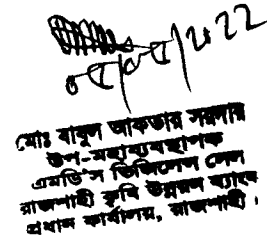 মোঃ বাবুল আকতার সরদার
উপ-মহাব্যবস্থাপক
এমডি'স ভিজিলেন্স সেল
রাজশাহী কৃষি উন্নয়ন ব্যাংক
প্রধান কার্যালয়, রাজশাহী।